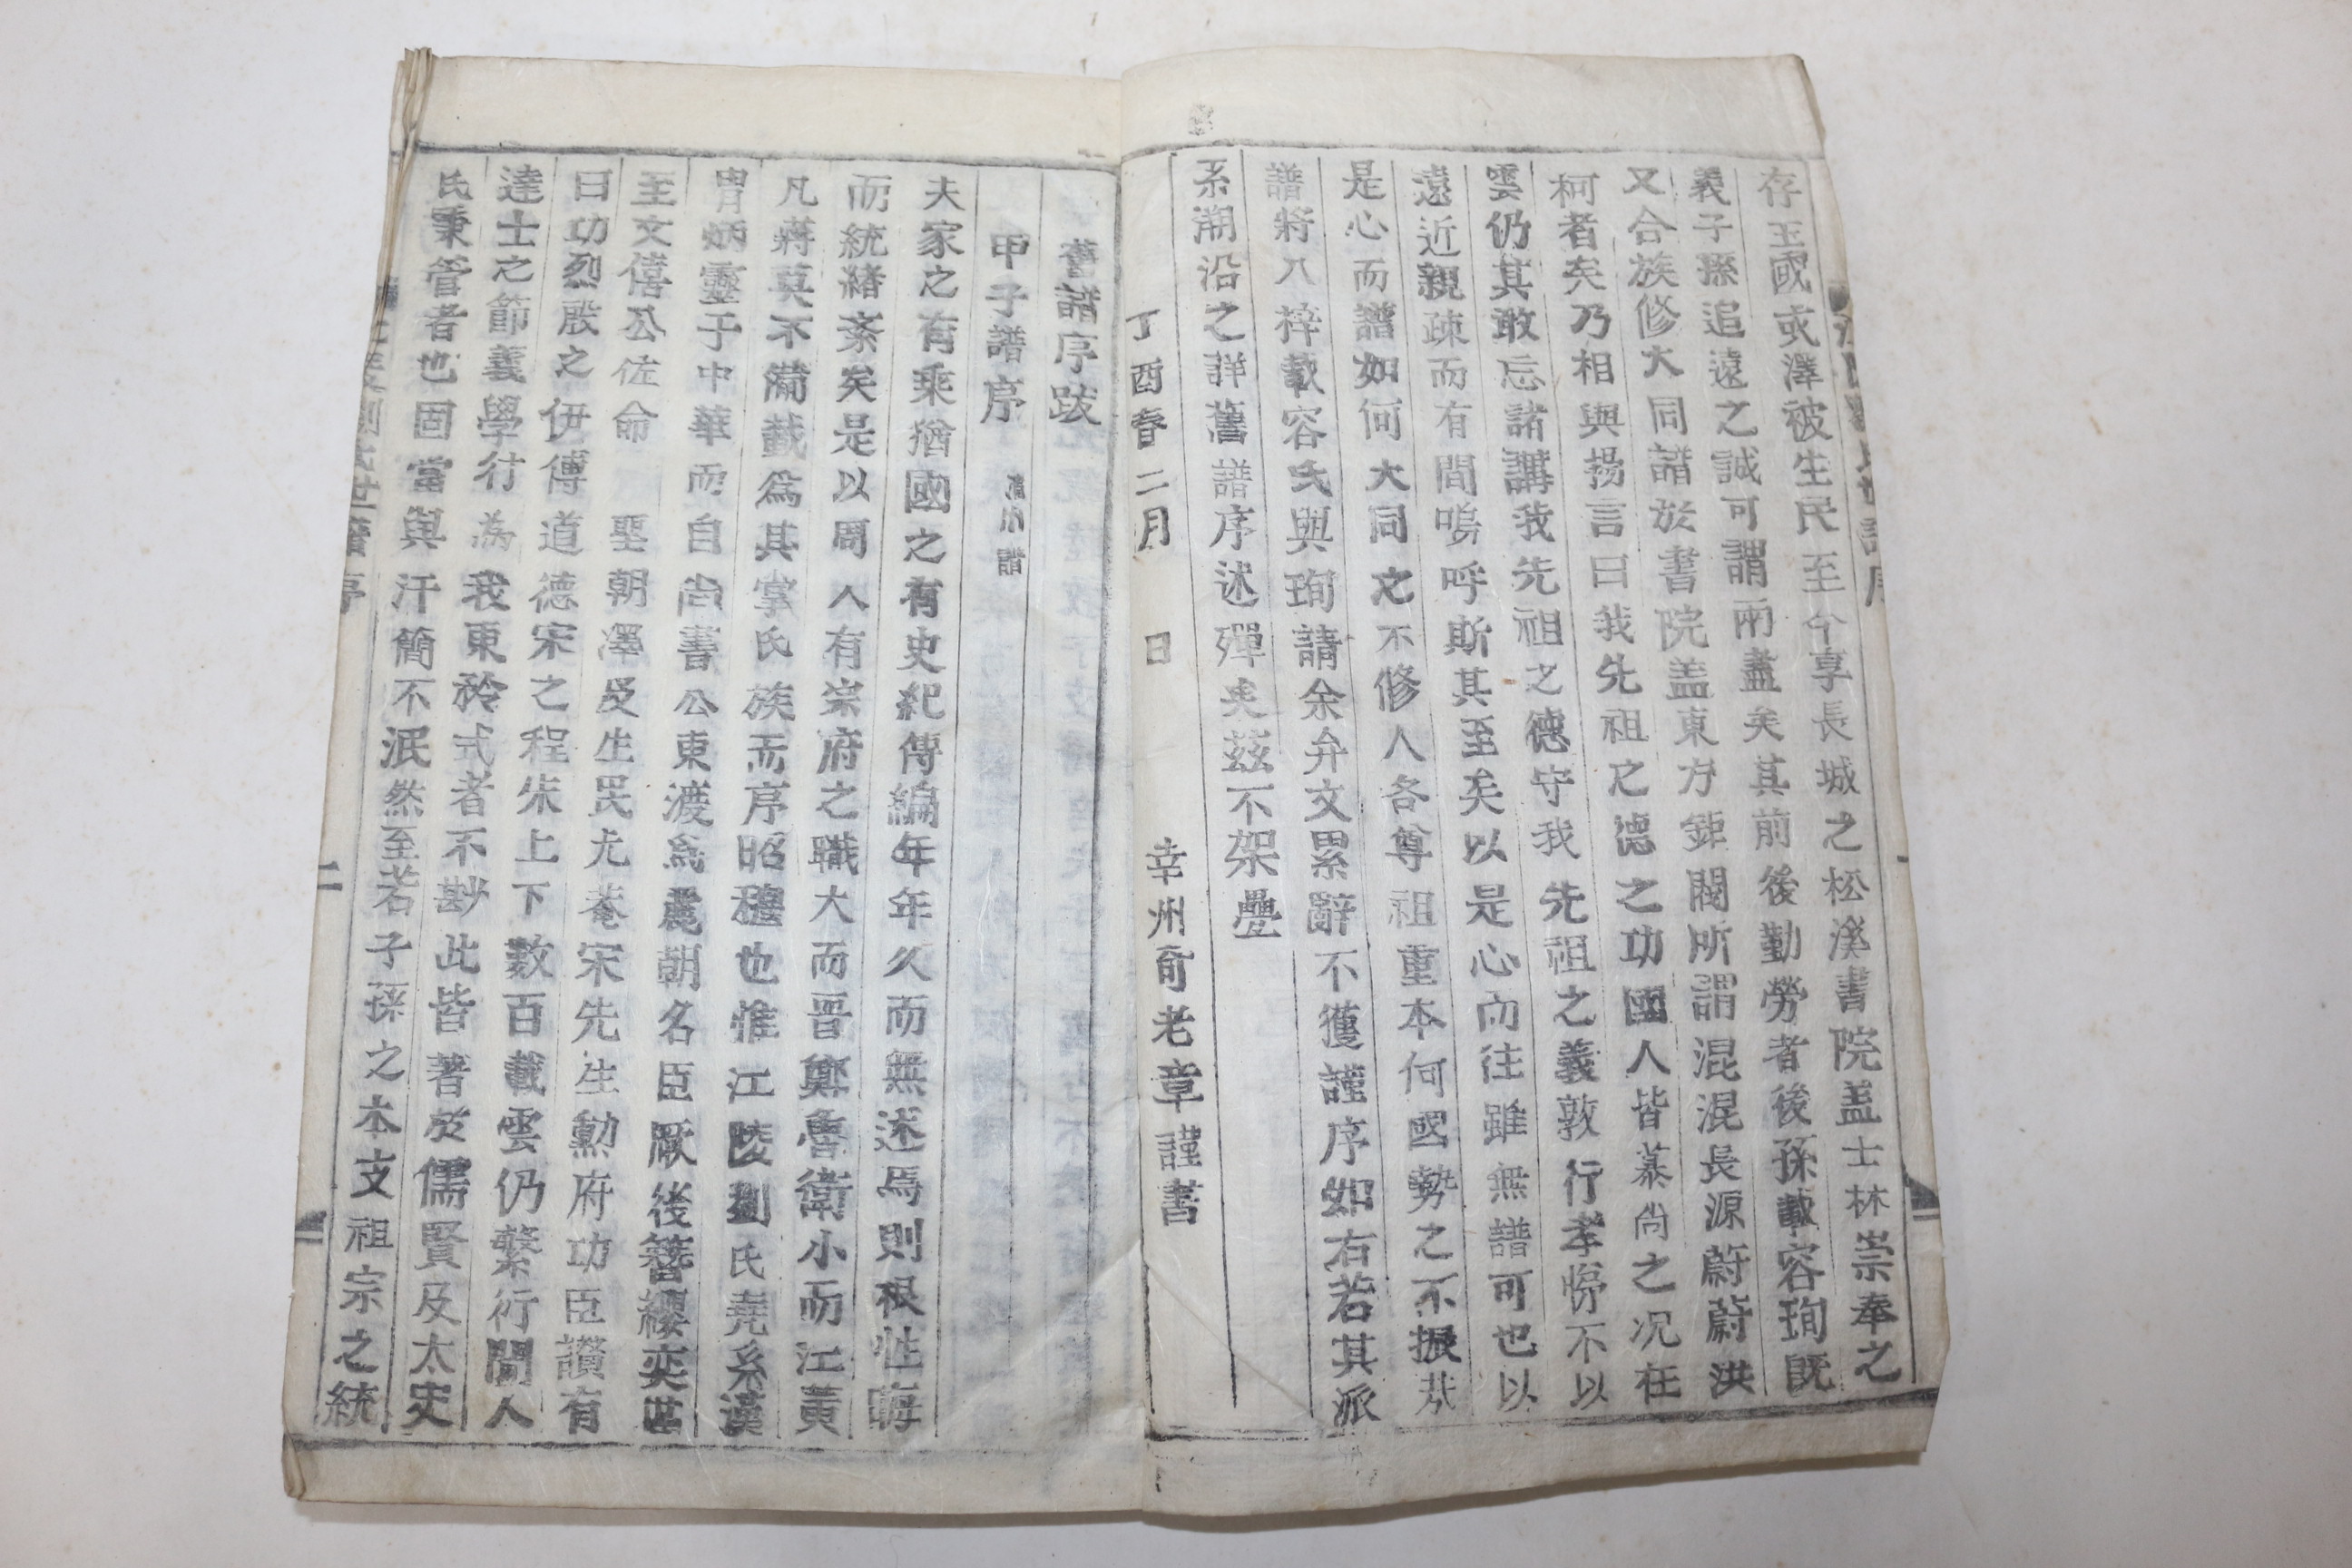 存王國或澤被生民至今享長城之松溪書院盖士林崇奉之
義子孫追遠之誠可謂兩盡矣其前後勤勞者後孫載容珣旣
又合族修大同譜於書院盖東方鉅閥所謂混混長源蔚蔚洪
柯者矣乃相與揚言曰我先祖之德之功國人皆慕尙之况在
雲仍其敢忘諸講我先祖之德守我先祖之義敦行孝悌不以
遠近親疎而有間嗚呼斯其至矣以是心而往雖無譜可也以
是心而譜如何大同之不修人各尊祖重本何國勢之不振茲
譜將入梓載容氏與珣請余弁文累辭不獲謹序如右若其派
系溯沿之詳舊譜序述殫矣茲不架疊
丁酉春二月 日 幸州奇老章謹書
舊譜序跋
甲子譜序
夫家之有乘猶國之有史紀傳編年年久而無述焉則根性晦
而統緖紊矣是以周人有宗府之職大而晋鄭魯衛小而江黃
凡蔣莫不備載爲其掌氏族而序昭穆也惟江陵劉氏堯系漢
胄炳靈于中華而自尙書公東渡爲麗朝名臣厥後簪纓奕世
至文僖公佐命 聖朝澤及生民尤菴宋先生勳府功臣讚有
曰功烈殷之伊傅道德宋之程朱上下數百載雲仍繁衍間人
達士之節義學行為我東矜式者不尠此皆著於儒賢及太史
氏秉管者也固當與汗簡不泯然至若子孫之本支祖宗之統
二